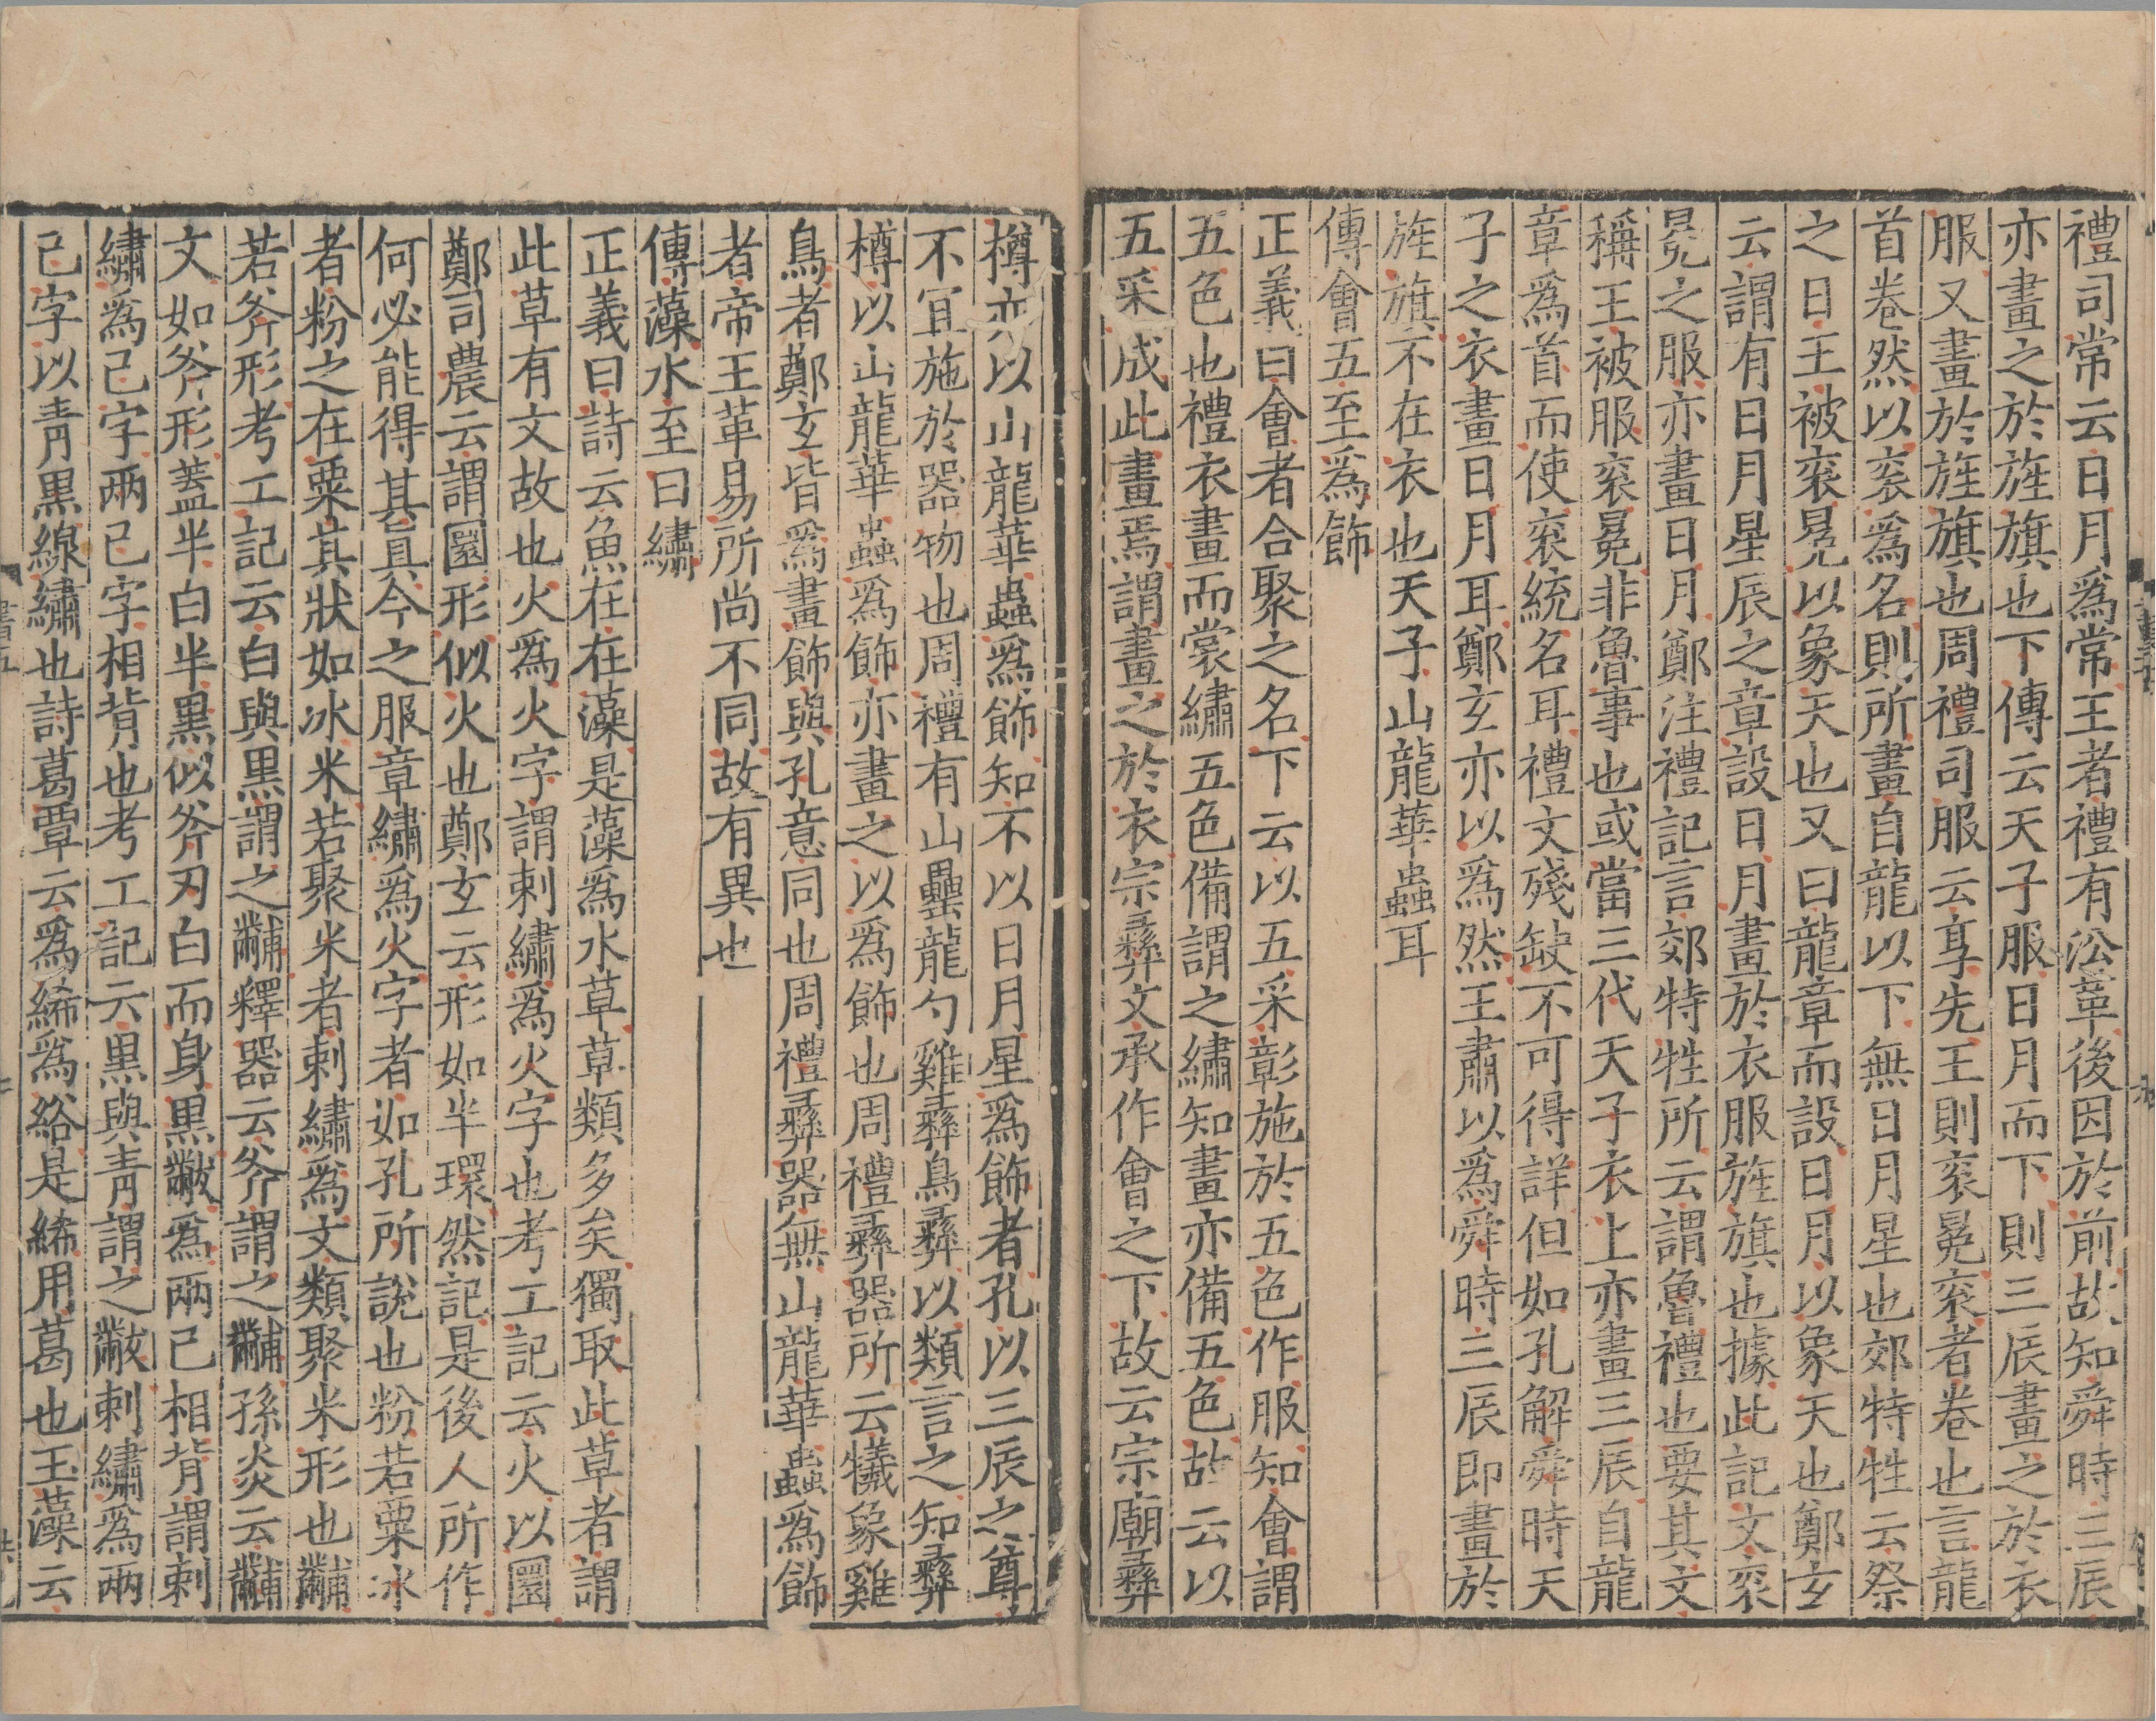 禮司常云日月爲常王者禮有㳂革後因於前故知舜時三辰
亦畫之於旌旗也下傳云天子服日月而下則三辰畫之於衣
服又畫於旌旗也周禮司服云享先王則衮冕衮者卷也言龍
首卷然以衮爲名則所畫自龍以下無日月星也郊特牲云祭
之日王被衮冕以象天也又曰龍章而設日月以象天也鄭玄
云謂有日月星辰之章設日月畫於衣服旌旗也據此記文衮
冕之服亦畫日月鄭注禮記言郊特牲所云謂魯禮也要其文
稱王被服衮冕非魯事也或當三代天子衣上亦畫三辰自龍
章爲首而使衮統名耳禮文殘缺不可得詳但如孔解舜時天
子之衣畫日月耳鄭玄亦以爲然王肅以爲舜時三辰即畫於
旌旗不在衣也天子山龍華蟲耳
傳會五至爲飾
正義曰會者合聚之名下云以五采彰施於五色作服知會謂
五色也禮衣畫而裳繡五色備謂之繡知畫亦備五色故云以
五采成此畫焉謂畫之於衣宗彛文承作會之下故云宗廟彛
樽亦以山龍華蟲爲飾知不以日月星爲飾者孔以三辰之尊
不宜施於器物也周禮有山罍龍勺雞彛鳥彛以類言之知彛
樽以山龍華蟲爲飾亦畫之以爲飾也周禮彛器所云犧象雞
鳥者鄭玄皆爲畫飾與孔意同也周禮彛器無山龍華蟲爲飾
者帝王革易所尚不同故有異也
傳藻水至曰繡
正義曰詩云魚在在藻是藻爲水草草類多矣獨取此草者謂
此草有文故也火爲火字謂刺繡爲火字也考工記云火以圜
鄭司農云謂圜形似火也鄭玄云形如半環然記是後人所作
何必能得其真今之服章繡爲火字者如孔所說也粉若粟冰
者粉之在粟其狀如冰米若聚米者刺繡爲文類聚米形也黼
若斧形考工記云白與黑謂之黼釋器云斧謂之黼孫炎云黼
文如斧形蓋半白半黑似斧刃白而身黑黻爲兩己相背謂刺
繡爲己字兩己字相背也考工記云黑與青謂之黻刺繡爲兩
己字以青黑線繡也詩葛覃云爲絺爲綌是絺用葛也玉藻云